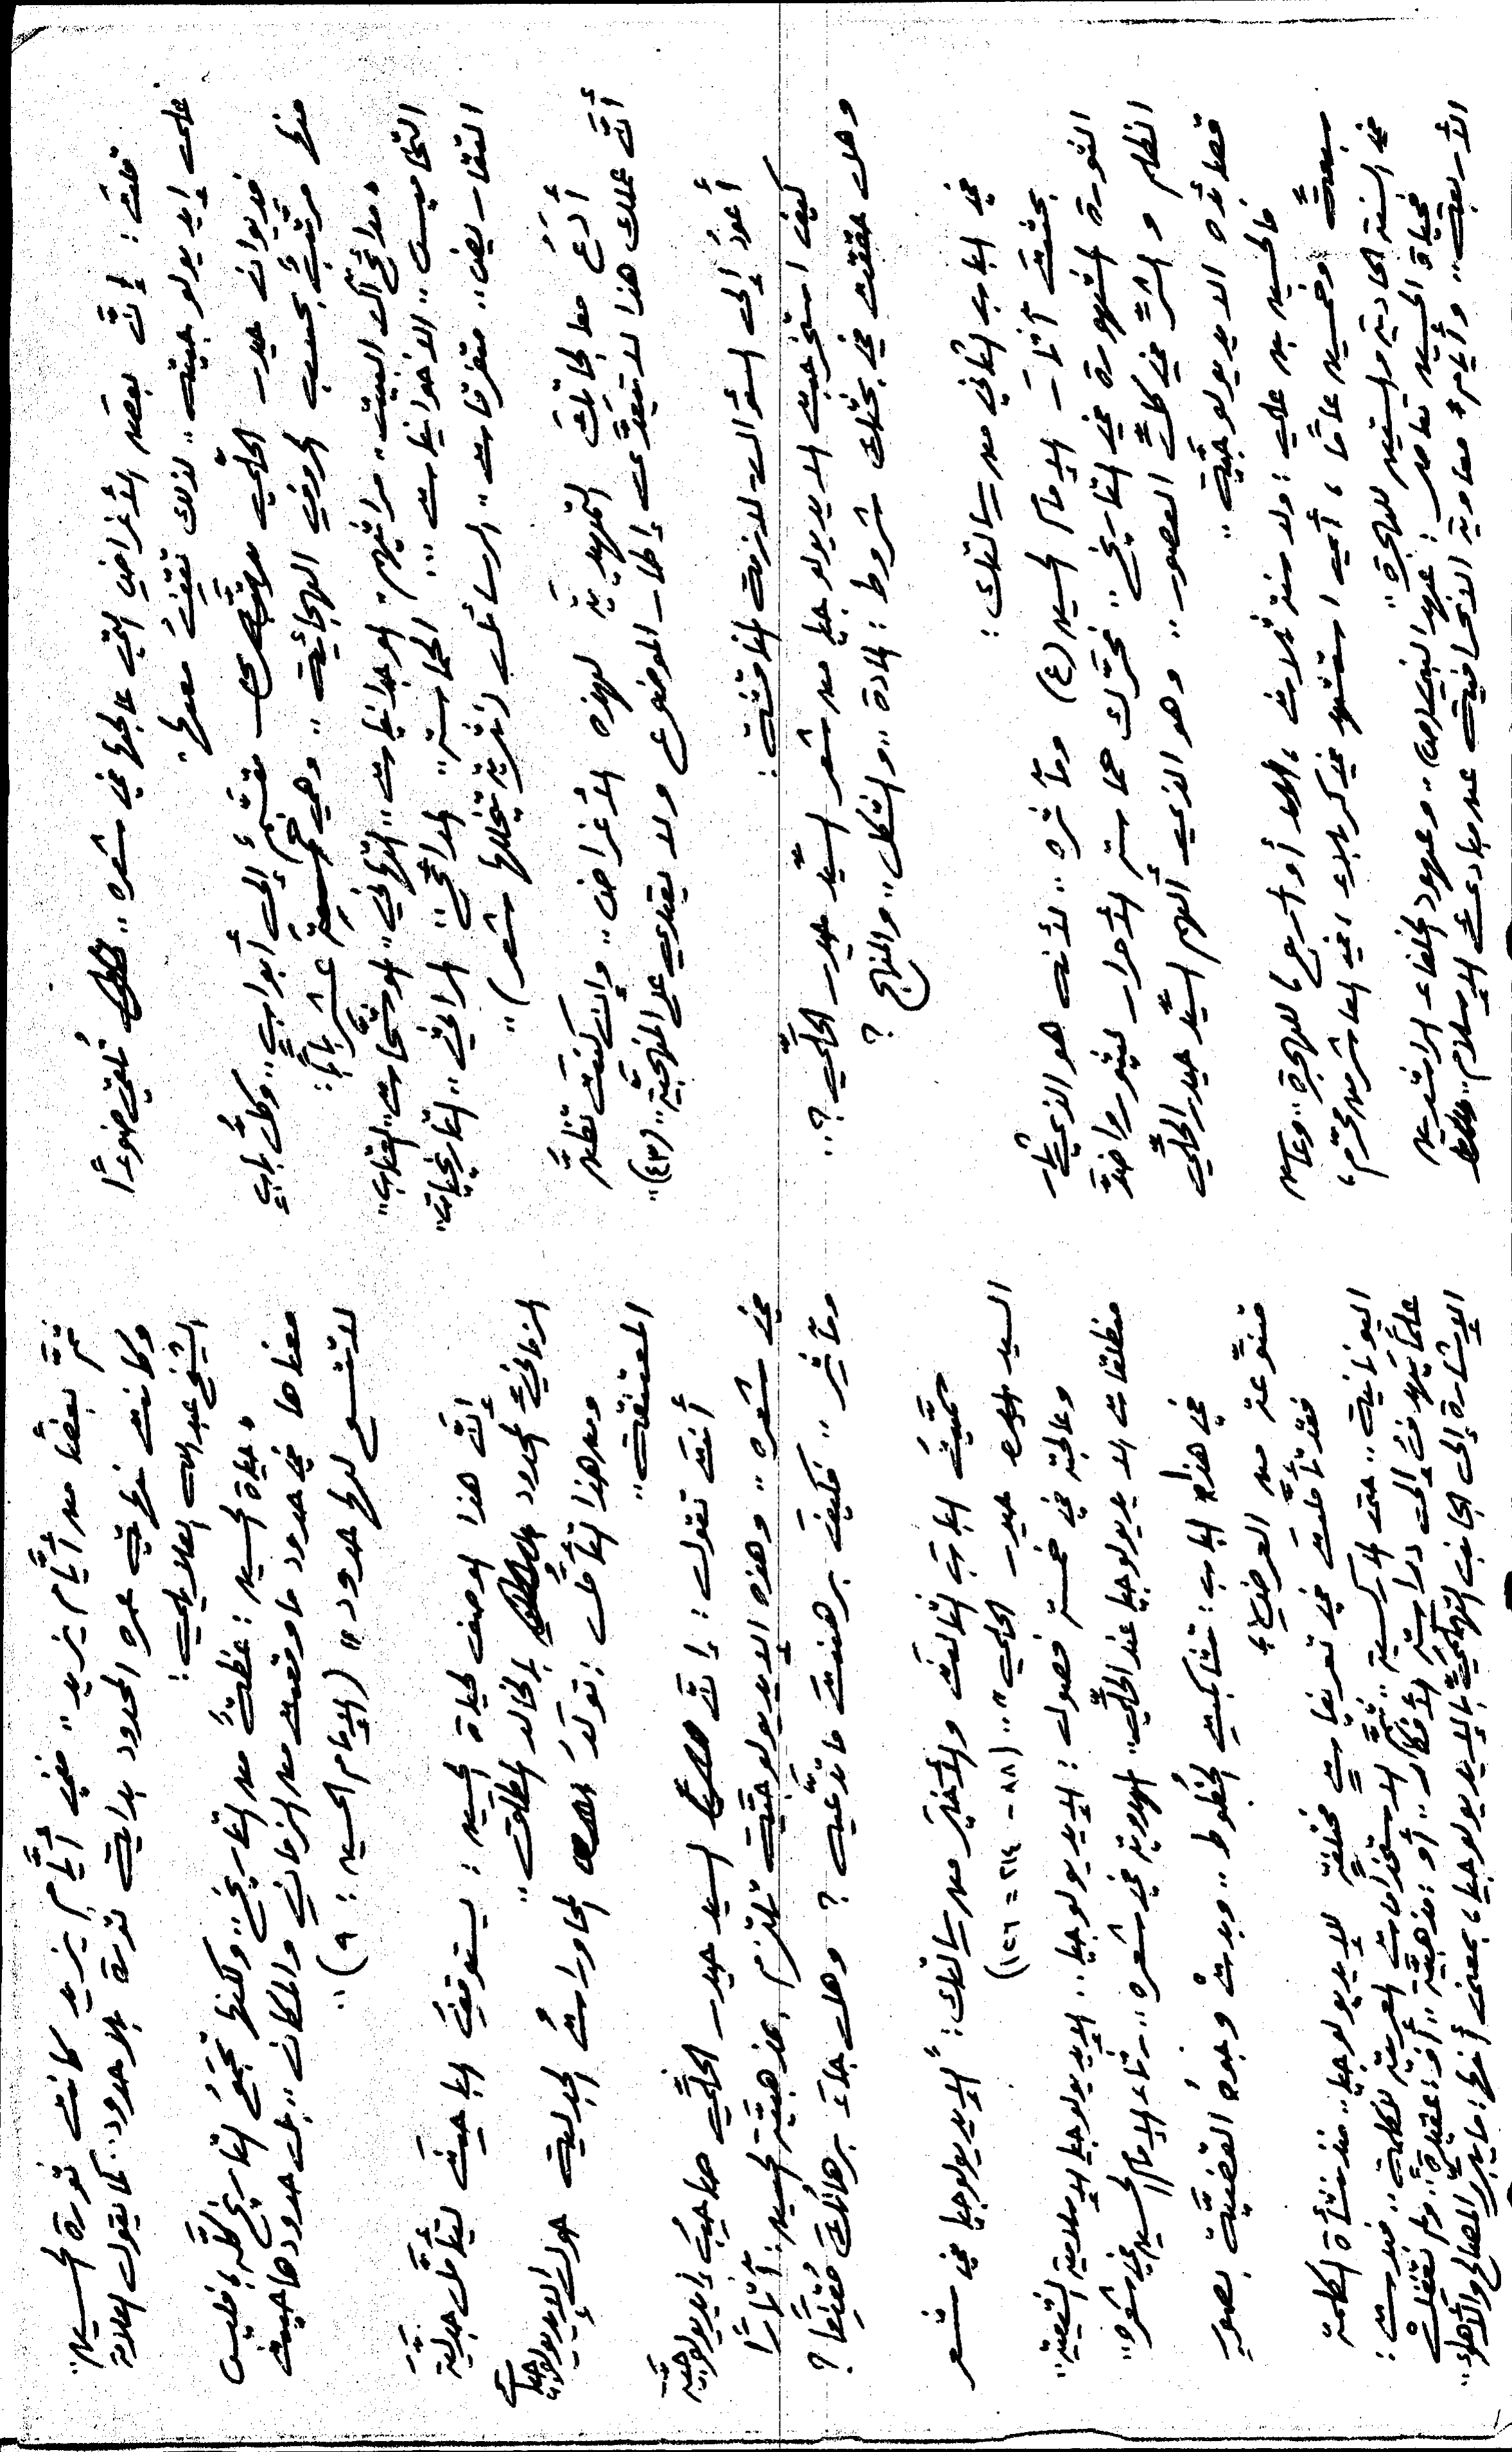 قلتَ : إنَّ بعضَ الأغراض التي عالجها في شعره ,, تُلقي ضوءًا
على إيديولوجيته ,, لذلك تقفُ معها ,,
فديوان حيدر الحلّي مقسَّم إلى أبواب ,, وكلُّ بابٍ
منها مرتَّبٌ بحسب الحروف الهجائية ,, وهي خمسة عشر بابًا :
"مدائح آل البيت ,, مراثيهم ,, الوجدانيات ,, التهاني ,, الموشّحات ,, العتاب ,,
التخاميس ,, الاخوانيات ,, الحماسة ,, المدائح ,, المراثي ,, التاريخيات ,,
التقاريض ,, متفرقات ,, الرسائل (نثرية تتخللها شعر) ,,
أدَعُ معالجاتِكَ التمهيديّة لهذه الأغراض ,, وإن كنتَ تظنّ
أنَّ عملك هذا لا يتعدّى إطار الموضوع ولا يعتدي على المنهجيّة ,, (٤٣) ,,
أعودُ إلى السؤال لازمة المناقشة :
كيف استخرجت الايديولوجيا من شعر السيّد حيدر الحلّي ؟..
وهل حققت في بحثك شروط : المادة ,, والشكل ,, والمنهج ؟
في الباب الثاني من رسالتك :
بحثتَ آثارَ الإمام الحسين (ع) ومآثره ,, لأنه هو الذي أثار
الثورة المشهورة في التاريخ ,, فحرّك حماسة الأحرار ليثوروا ضدّ
الظلم والشرّ في كلّ العصور ,, وهو الذي ألهم السيّد حيدر الحلّي
قصائده الايديولوجيّة ,,
فالحسين بن علي : ولد سنة ثلاث ، أو أربع ، للهجرة ,, وعاش
سبعةً وخمسين عامًا ، أي استشهد في كربلاء ، في العاشر من محرّم ،
في السنة الحادية والستين للهجرة ,,
فحياة الحسين تعاصر : عهد النبي (ص) ,, وعهود الخلفاء الراشدين
الأربعة ,, وأيام معاوية الانحرافية عن مبادئ الإسلام ,,
ثمَّ بعضًا من أيَّام يزيد ,, ففي أيَّام يزيد كانت ثورة الحسين ,,
وكانت نهاية عمره المحدود بداية ثورة بلا حدود .. كما يقول العلامة
الشيخ عبدالله العلايلي :
"حياة الحسين : عظةٌ من التاريخ ,, ولكنها تجمعُ التاريخ كلَّه فليس
معناها في حدود ما وقعت من الزماني والمكان ,, بل حدودها حيث
لا تتسع لها حدود" (الإمام الحسين : ٩) ,,
إنَّ هذا الوصف لحياة الحسين : يستوقفُ الباحثَ ليتأمَّل جدليّة
الزماني المحدود بالخالد المطلق ,,
ومن هذا التأمُّل : تولدُ المحاوراتُ الجدلية حول الإيديولوجيا
المعتنقة ,,
أنتَ تقول : إنَّ السيد حيدر الحلّي صاحبُ إيديولوجيّة
في شعره ,, وهذه الإيديولوجيّة تلتزم بمذهبيّة الحسين : آثارًا
ومآثر ,, فكيف برهنت ما تدّعيه ؟ وهل جاءَ برهانُكَ مُقنعًا ؟
سمّيتَ البابَ الثالثَ والأخيرَ من رسالتك : "الإيديولوجيا في شعر
السيد حيدر الحلي" ,, (٨٨ - ٢١٤ = ١٢٦)
وعالجته في خمسة فصول : الايديولوجيا .. الإيديولوجيا الإسلامية الشيعيّة ,,
منطلقات الايديولوجيا عند الحلّي ,, المهدوية في شعره ,, رثاء الإمام الحسين في شعره ,,
في هذا الباب : تشابكت الخُطوط ,, وبدتْ وجوهُ القضيّة بصورٍ
متنوّعة من العرض ؛
فقد تأمّلتَ في تعريفاتٍ مختلفة للإيديولوجيا ,, منذ نشأة الكلمة
اليونانية ,, حتى الماركسية ,, ثمَّ الاستخدامات العربية للكلمة ,, فدرست :
علمًا يهدف إلى دراسة الأفكار ,, أو : مذهبيّة ,, أو : عقيدة ,, ولم تغفلْ
الإشارة إلى الجانب التهكميّ بالإيديولوجيا ، بمعنى أنها : ما يبرر المصالح والأهواء ,,